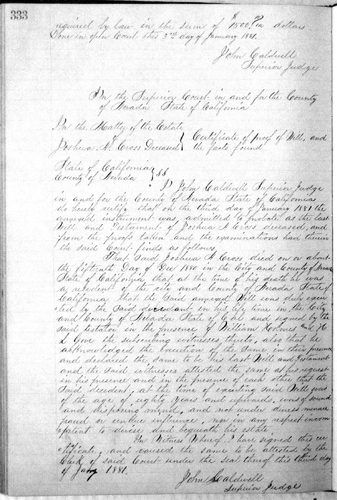 333
required by law in the sum of $500.00 dollars
Done in open Court this 3rd day of January 1881.
John Caldwell
Superior Judge
In the Superior Court in and for the County
of Nevada State of California
In the Matter of the Estate
of Joshua A. Cross Deceased
Certificate of proof of Will, and
the facts found.
State of California
County of Nevada } ss
I, John Caldwell Superior Judge
in and for the County of Nevada State of California
do hereby certify that on the third day of January 1881 the
annexed instrument was admitted to probate as the last
Will and Testament of Joshua A Cross deceased, and
from the proofs taken and the examinations had therein
the said Court finds as follows
That Said Joshua A Cross died on or about
the fifteenth Day of Dec 1880 in the City and County of Nevada
State of California, that at the time of his death he was
a resident of the city and County of Nevada State of
California that the Said annexed Will was duly executed
by the Said decedent in his life time in the City
and County of Nevada State of Cal and signed by the
said testator in the presence of William Holmes and
the subscribing witnesses thereto, also that he
acknowledged the execution of the same in their presence
and declared the same to be his last Will and Testament
and the Said witnesses attested the same at his request
in his presence and in the presence of each other that the
Said decedent, at the time of executing Said Will was
of the age of eighty years and upwards, was of sound
and disposing mind, and not under duress menace
fraud or undue influence, nor in any respect incompetent
to devise and bequeath his estate
In Witness Whereof, I have signed this certificate,
and caused the same to be attested by the
Clerk of said Court under the seal thereof this third day
of Jany 1881.
John Caldwell
Superior Judge